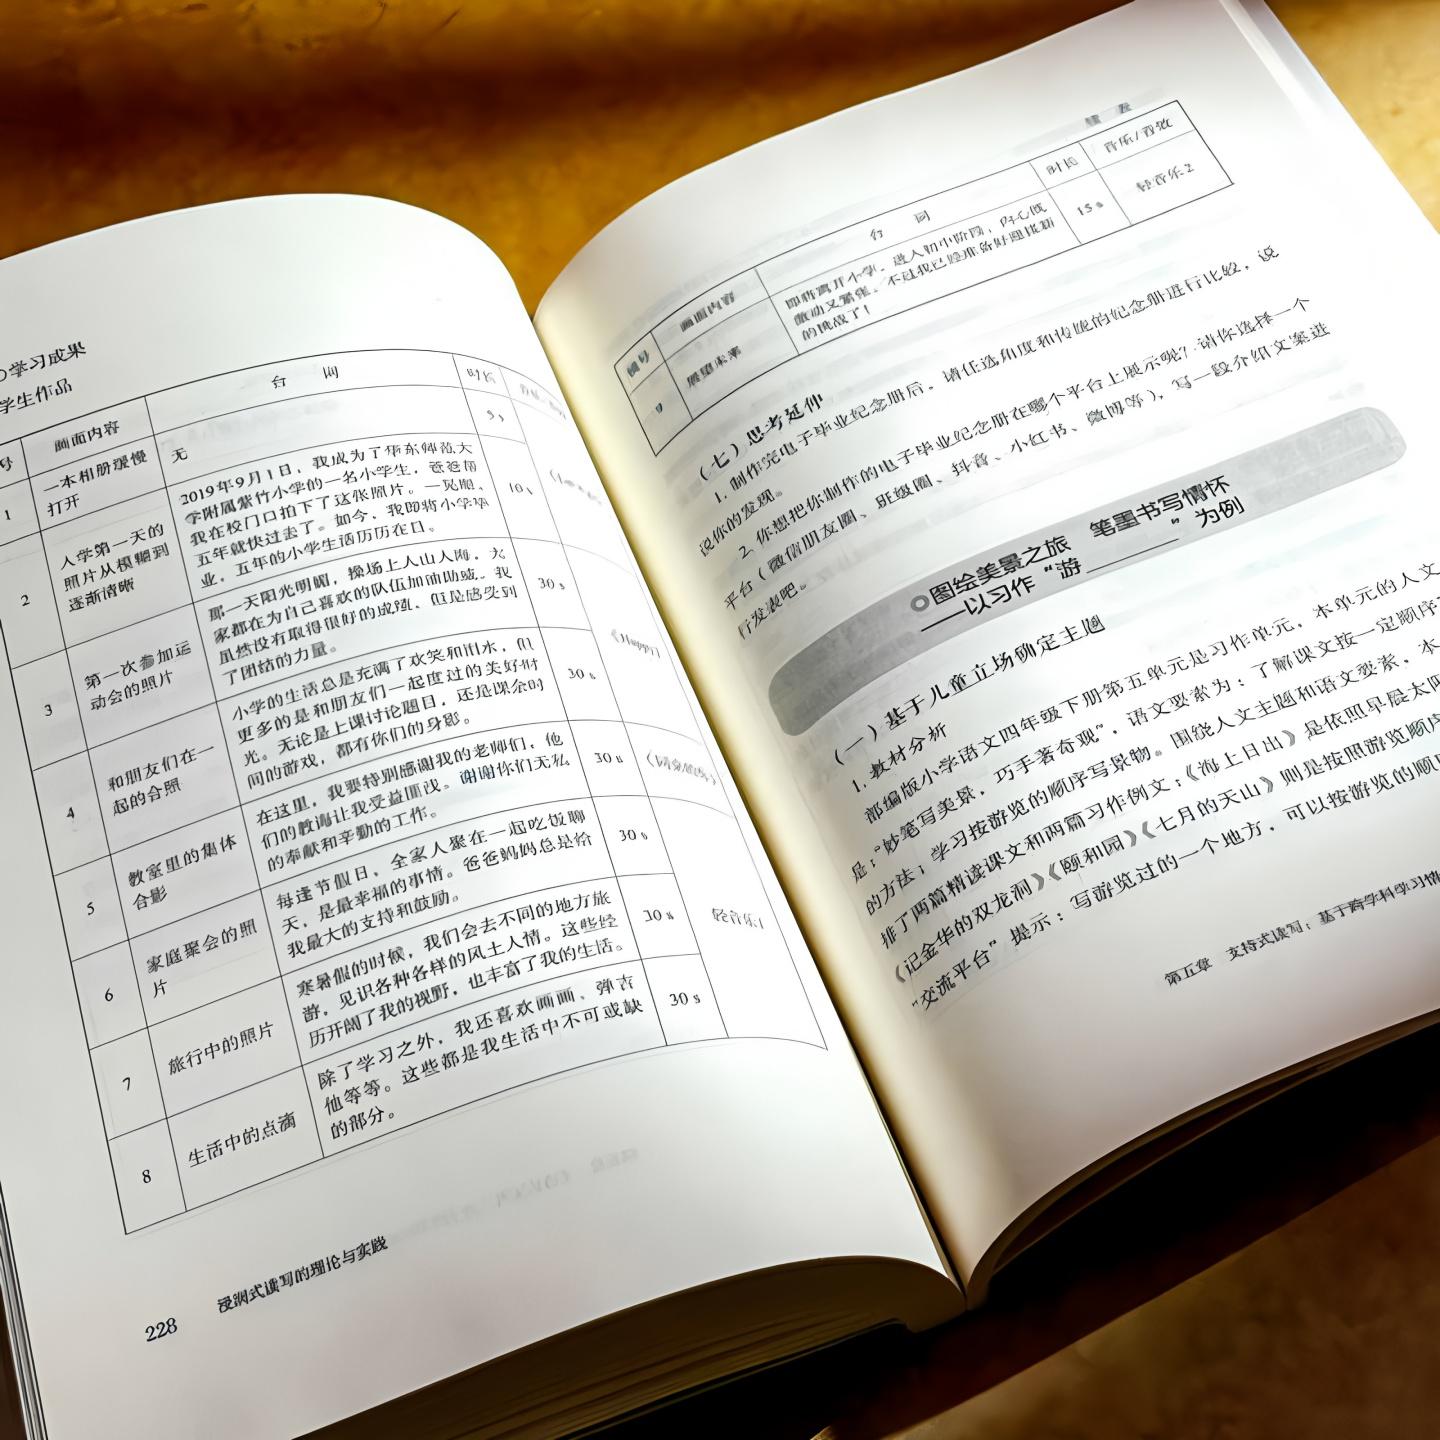 学习成果
学生作品
号
画面内容
台 词
时长
1
一本相册缓慢
打开
无
5 s
2
入学第一天的
照片从模糊到
逐渐清晰
2019年9月1日，我成为了华东师范大
学附属紫竹小学的一名小学生，爸爸帮
我在校门口拍下了这张照片。一晃眼，
五年就快过去了。如今，我即将小学毕
业，五年的小学生活历历在目。
10 s
3
第一次参加运
动会的照片
那一天阳光明媚，操场上人山人海，大
家都在为自己喜欢的队伍加油助威。我
虽然没有取得很好的成绩，但是感受到
了团结的力量。
30 s
《Happy》
4
和朋友们在一
起的合照
小学的生活总是充满了欢笑和泪水，但
更多的是和朋友们一起度过的美好时
光。无论是上课讨论题目，还是课余时
间的游戏，都有你们的身影。
30 s
5
教室里的集体
合影
在这里，我要特别感谢我的老师们，他
们的教诲让我受益匪浅。谢谢你们无私
的奉献和辛勤的工作。
30 s
6
家庭聚会的照
片
每逢节假日，全家人聚在一起吃饭聊
天，是最幸福的事情。爸爸妈妈总是给
我最大的支持和鼓励。
30 s
轻音乐1
7
旅行中的照片
寒暑假的时候，我们会去不同的地方旅
游，见识各种各样的风土人情。这些经
历开阔了我的视野，也丰富了我的生活。
30 s
8
生活中的点滴
除了学习之外，我还喜欢画画、弹吉
他等等。这些都是我生活中不可或缺
的部分。
30 s
228
浸润式读写的理论与实践
续 表
镜号
画面内容
台 词
时长
音乐/音效
9
展望未来
即将离开小学，进入初中阶段，内心既
激动又紧张。不过我已经准备好迎接新
的挑战了！
15 s
轻音乐2
（七）思考延伸
1. 制作完电子毕业纪念册后，请任选角度和传统的纪念册进行比较，说
说你的发现。
2. 你想把你制作的电子毕业纪念册在哪个平台上展示呢？请你选择一个
平台（微信朋友圈、班级圈、抖音、小红书、微博等），写一段介绍文案进
行发表吧。
图绘美景之旅 笔墨书写情怀
——以习作“游______”为例
（一）基于儿童立场确定主题
1. 教材分析
部编版小学语文四年级下册第五单元是习作单元，本单元的人文
是：“妙笔写美景，巧手著奇观”，语文要素为：了解课文按一定顺序
的方法；学习按游览的顺序写景物。围绕人文主题和语文要素，本
排了两篇精读课文和两篇习作例文：《海上日出》是依照早晨太阳
《记金华的双龙洞》《颐和园》《七月的天山》则是按照游览顺序
“交流平台”提示：写游览过的一个地方，可以按游览的顺
第五章 支持式读写：基于跨学科学习情